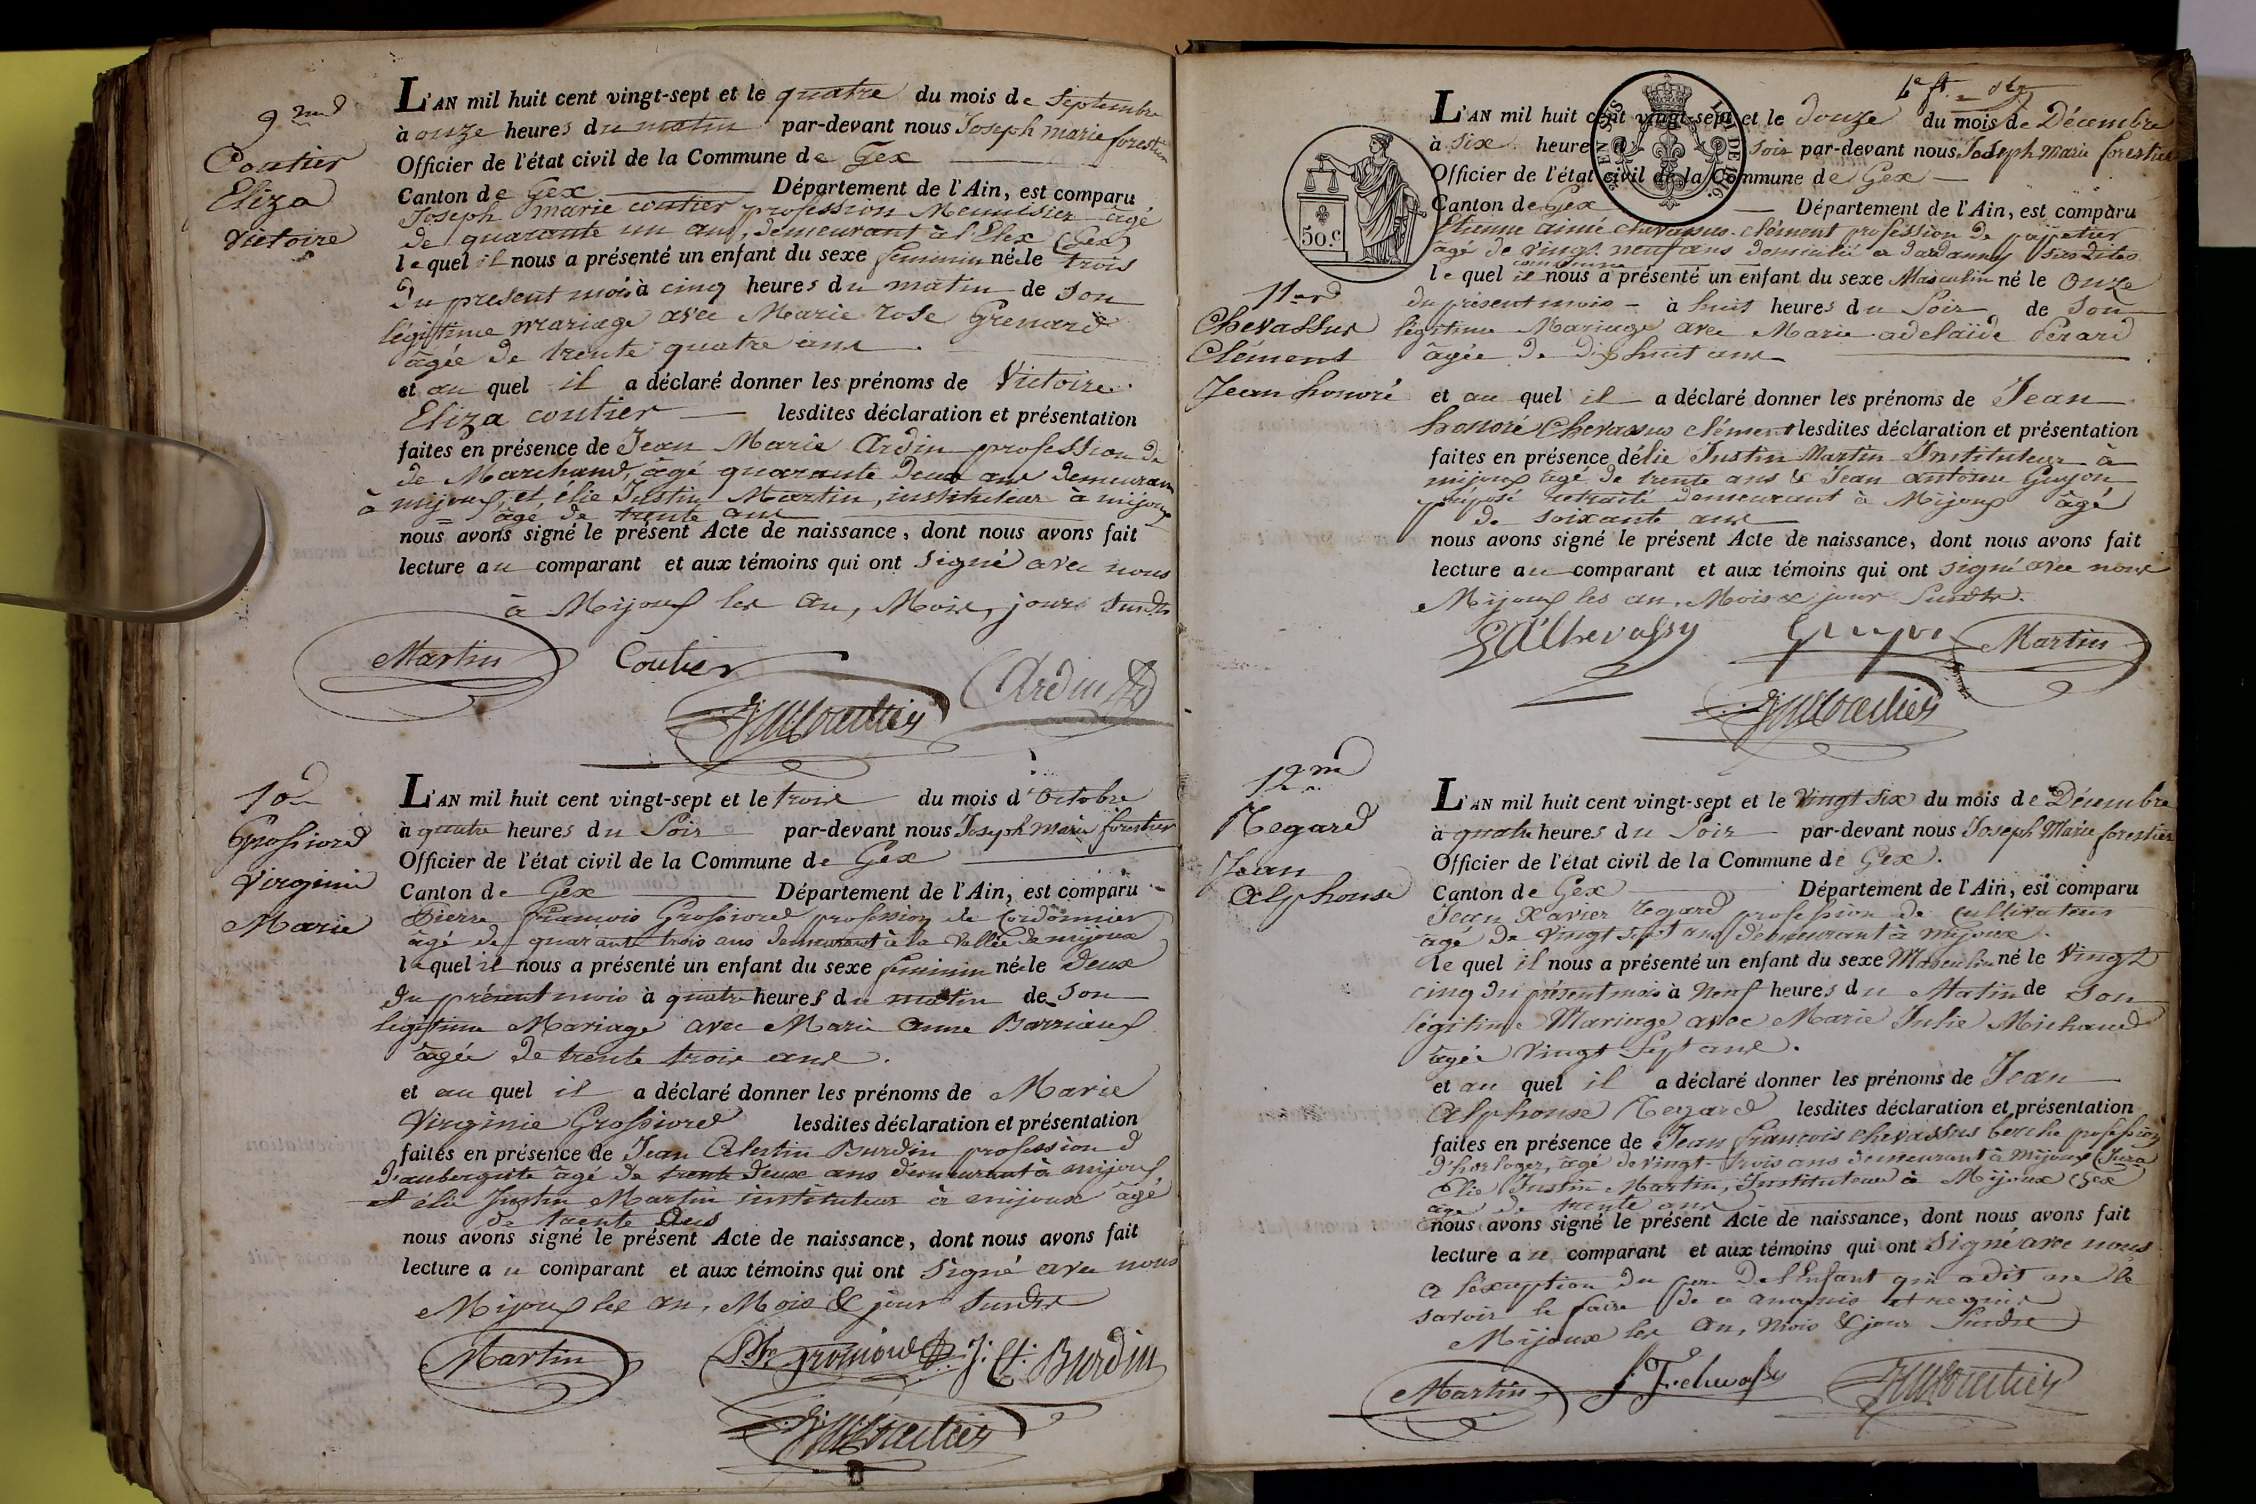 9me
Coutier
Eliza
Victoire
L'AN mil huit cent vingt-sept et le quatre du mois de Septembre
à onze heures du matin par-devant nous Joseph marie forestier
Officier de l'état civil de la Commune de Gex
Canton de Gex Département de l'Ain, est comparu
Joseph marie coutier profession Menuisier agé
de quarante un ans, demeurant à l'Elex (Gex)
le quel il nous a présenté un enfant du sexe feminin née le trois
du present mois à cinq heures du matin de son
légitime mariage avec Marie rose Grenard
âgée de trente quatre ans
et au quel il a déclaré donner les prénoms de Victoire
Eliza coutier lesdites déclaration et présentation
faites en présence de Jean Marie Ardin profession de
de Marchand, âgé quarante deux ans demeurant
à mijoux, et élie Justin Martin, instituteur à mijoux
âgé de trente ans
nous avons signé le présent Acte de naissance, dont nous avons fait
lecture au comparant et aux témoins qui ont signé avec nous
à Mijoux les an, Mois, jours susdits
Martin Coutier Ardin
10
Grossiord
Virginie
Marie
L'AN mil huit cent vingt-sept et le trois du mois d'Octobre
à quatre heures du Soir par-devant nous Joseph Marie forestier
Officier de l'état civil de la Commune de Gex
Canton de Gex Département de l'Ain, est comparu
Pierre françois Grossiord profession de Cordonnier
âgé de quarante trois ans demeurant à la Vallée de mijoux
le quel il nous a présenté un enfant du sexe feminin née le Deux
du présent mois à quatre heures du matin de son
légitime Mariage avec Marie Anne Barriaux
âgée de trente trois ans.
et au quel il a déclaré donner les prénoms de Marie
Virginie Grossiord lesdites déclaration et présentation
faites en présence de Jean Celestin Burdin profession d
D'aubergiste âgé de trente deux ans demeurant à mijoux
et élie Justin Martin instituteur à mijoux âgé
de trente Ans
nous avons signé le présent Acte de naissance, dont nous avons fait
lecture au comparant et aux témoins qui ont signé avec nous
Mijoux les an, Mois & jour susdit
Martin J. Ct. Burdin
L'AN mil huit cent vingt-sept et le douze du mois de Décembre
à six heures du soir par-devant nous Joseph marie forestier
Officier de l'état civil de la Commune de Gex
Canton de Gex Département de l'Ain, est comparu
50.c
Etienne aimé chevassus clément profession de papetier
âgé de vingt neuf ans domicilié a susdite
commune
le quel il nous a présenté un enfant du sexe Masculin né le Onze
11
Chevassus
Clément
Jean honoré
du présent mois à huit heures du Soir de Son
légitime Mariage avec Marie adelaïde Pérard
âgée de Dix huit ans
et au quel il a déclaré donner les prénoms de Jean
honoré Chevassus clément lesdites déclaration et présentation
faites en présence d'élie Justin Martin Instituteur à
mijoux âgé de trente ans & Jean antoine Guyon
préposé retraité demeurant à Mijoux âgé
de soixante ans
nous avons signé le présent Acte de naissance, dont nous avons fait
lecture au comparant et aux témoins qui ont signé avec nous
Mijoux les an, Mois & jour Susdts.
Martin
12m
Regard
Jean
Alphonse
L'AN mil huit cent vingt-sept et le Vingt six du mois de Décembre
à quatre heures du Soir par-devant nous Joseph Marie forestier
Officier de l'état civil de la Commune de Gex.
Canton de Gex Département de l'Ain, est comparu
Jean Xavier regard profession de Cultivateur
âgé de Vingt sept ans demeurant à mijoux.
le quel il nous a présenté un enfant du sexe Masculin né le Vingt
cinq du présent mois à Neuf heures du Matin de Son
légitime Mariage avec Marie Julie Michaud
âgée Vingt Sept ans.
et au quel il a déclaré donner les prénoms de Jean
Alphonse Regard lesdites déclaration et présentation
faites en présence de Jean françois chevassus berche profession
d'horloger, âgé de vingt-trois ans demeurant à Mijoux (Jura
Elie Justin Martin, Instituteur à Mijoux (Gex
âgé de trente ans
nous avons signé le présent Acte de naissance, dont nous avons fait
lecture au comparant et aux témoins qui ont Signé avec nous
a l'exception du pere de l'Enfant qui a dit ne le
savoir le faire de ce enquis et requis
Mijoux les an, mois & jour Susdit
Martin